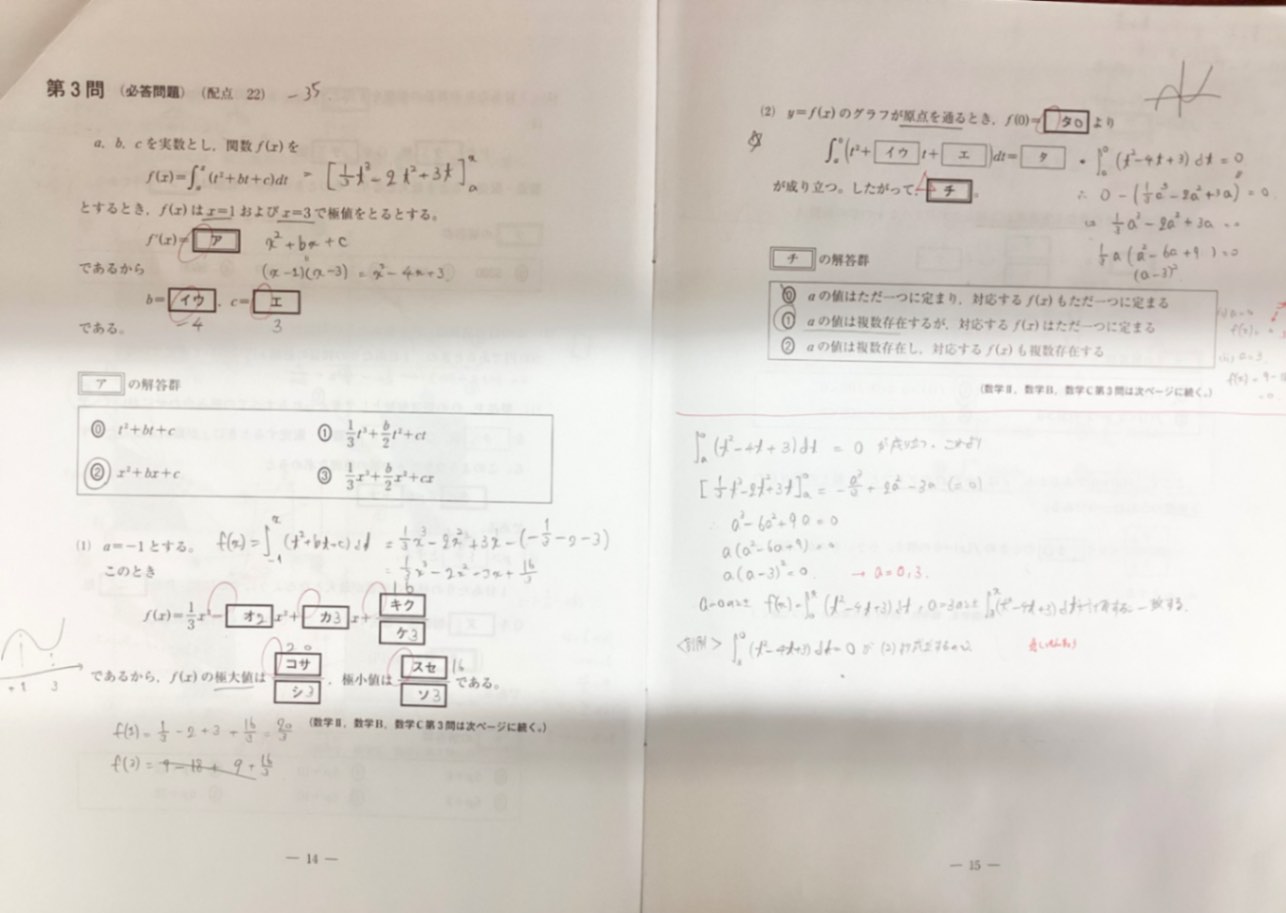 第3問 (必答問題) (配点 22) -35
a, b, c を実数とし，関数 f(x) を
f(x)=∫ₐˣ(t²+bt+c)dt = [⅓t³-2t²+3t]ₐˣ
とするとき，f(x) は x=1 および x=3 で極値をとるとする。
f'(x)= ア x²+bx+c
であるから (x-1)(x-3) = x²-4x+3
b= イウ , c= エ
-4 3
である。
ア の解答群
⓪ t²+bt+c ① 1/3 t³+b/2 t²+ct
② x²+bx+c ③ 1/3 x³+b/2 x²+cx
(1) a=-1 とする。 f(x)=∫₋₁ˣ(t²+bt+c)dt = 1/3 x³-2x²+3x-(-1/3-2-3)
このとき = 1/3 x³-2x²+3x+16/3
16
f(x)=1/3 x³- オ2 x²+ カ3 x+ キク/ケ3
20
であるから，f(x) の極大値は コサ/シ3 ，極小値は スセ/ソ3 16 である。
1 3
f(1)= 1/3-2+3+16/3=20/3 (数学Ⅱ，数学B，数学C第3問は次ページに続く。)
f(3)= 9-18+9+16/3
— 14 —
(2) y=f(x) のグラフが原点を通るとき，f(0)= タ0 より
∫ₐ⁰(t²+ イウ t+ エ )dt= タ ∫ₐ⁰(t²-4t+3)dt=0
が成り立つ。したがって， チ 。 ∴ 0-(1/3 a³-2a²+3a)=0
1/3 a³-2a²+3a=0
1/3 a(a²-6a+9)=0
(a-3)²
チ の解答群
⓪ aの値はただ一つに定まり，対応する f(x) もただ一つに定まる
① aの値は複数存在するが，対応する f(x) はただ一つに定まる
② aの値は複数存在し，対応する f(x) も複数存在する
(数学Ⅱ，数学B，数学C第3問は次ページに続く。)
∫ₐ⁰(t²-4t+3)dt = 0 が成り立つ。これより
[1/3 t³-2t²+3t]ₐ⁰ = -a³/3+2a²-3a (=0)
∴ a³-6a²+9a=0
a(a²-6a+9)=0
a(a-3)²=0. → a=0,3.
— 15 —